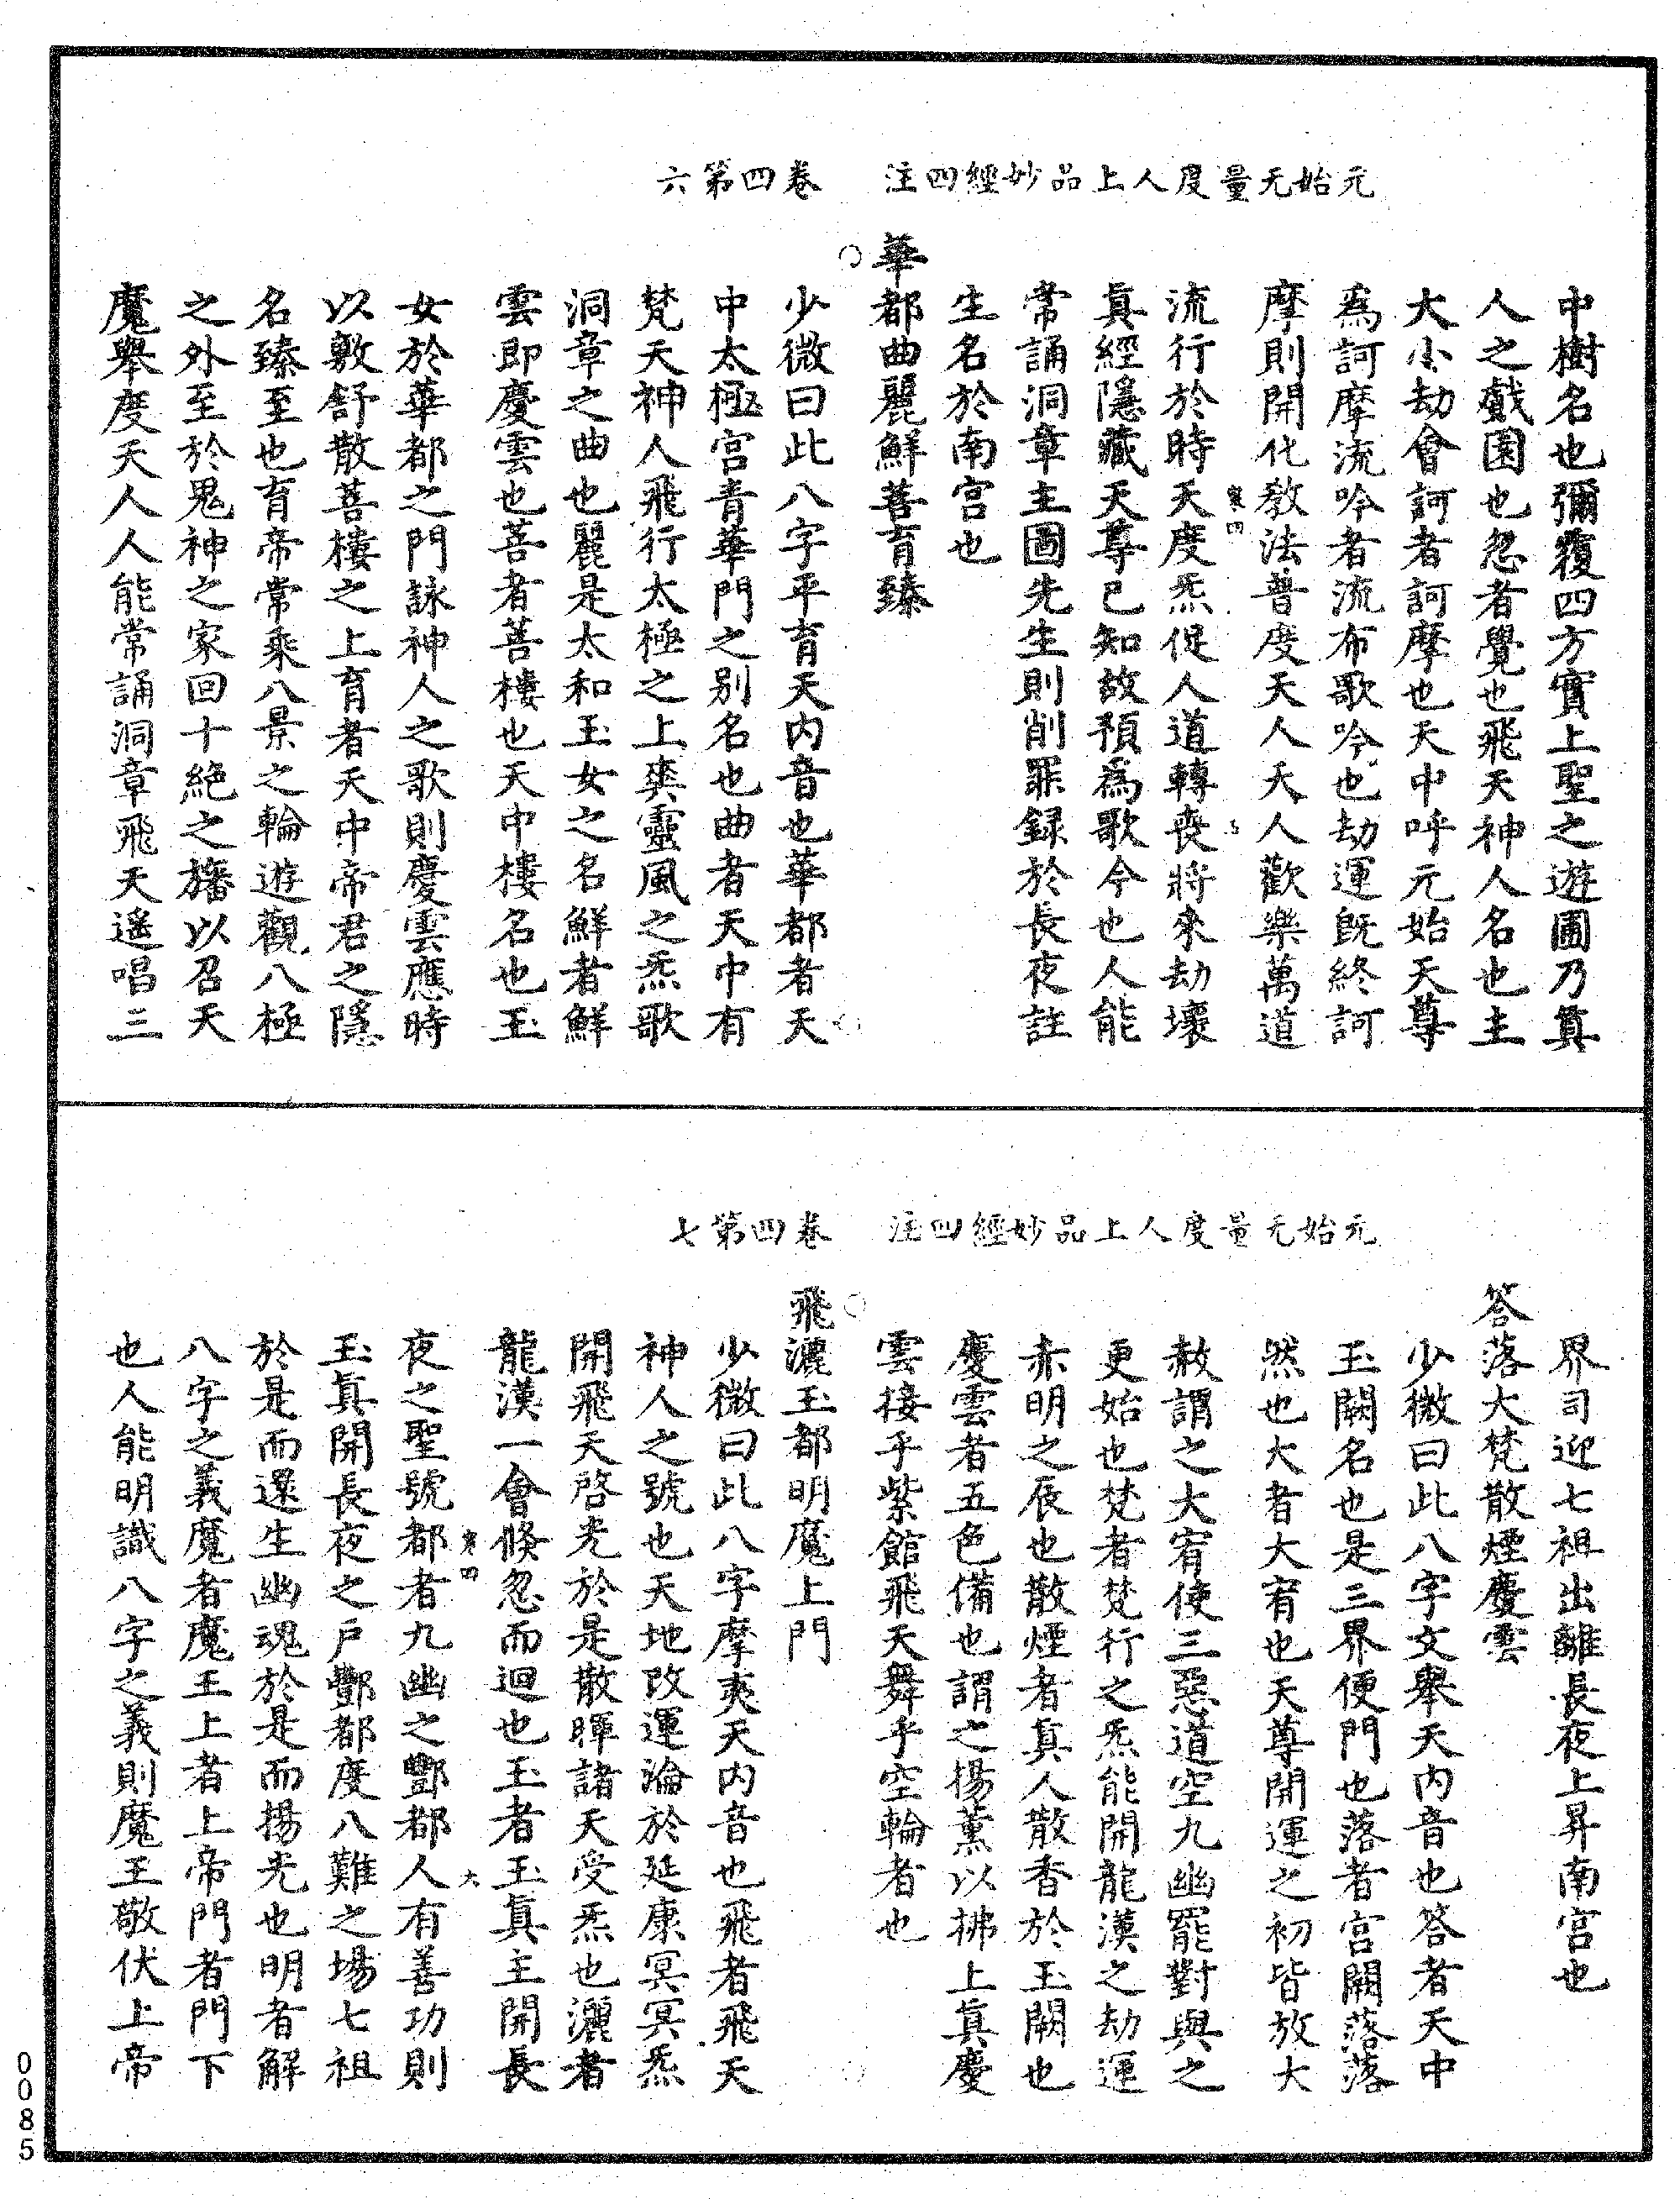 元始无量度人上品妙經四注　卷四第六
中樹名也彌覆四方寶上聖之遊圃乃眞
人之戲園也忽者覺也飛天神人名也主
大小劫會訶者訶摩也天中呼元始天尊
爲訶摩流吟者流布歌吟也劫運旣終訶
摩則開化敎法普度天人天人歡樂萬道
寒四
流行於時天度炁促人道轉喪將來劫壞
眞經隱藏天尊已知故預爲歌今也人能
常誦洞章主圖先生則削罪録於長夜註
生名於南宫也
華都曲麗鮮菩育臻
少微曰此八字平育天内音也華都者天
中太極宫青華門之别名也曲者天中有
梵天神人飛行太極之上奭靈風之炁歌
洞章之曲也麗是太和玉女之名鮮者鮮
雲即慶雲也菩者菩樓也天中樓名也玉
女於華都之門詠神人之歌則慶雲應時
以敷舒散菩樓之上育者天中帝君之隱
名臻至也育帝常乘八景之輪遊觀八極
之外至於鬼神之家回十絶之旛以召天
魔舉度天人人能常誦洞章飛天遙唱三
元始无量度人上品妙經四注　卷四第七
界司迎七祖出離長夜上昇南宫也
答落大梵散煙慶雲
少微曰此八字文舉天内音也答者天中
玉闕名也是三界便門也落者宫闕落落
然也大者大宥也天尊開運之初皆放大
赦謂之大宥使三惡道空九幽罷對與之
更始也梵者梵行之炁能開龍漢之劫運
赤明之辰也散煙者眞人散香於玉闕也
慶雲者五色備也謂之揚薰以拂上眞慶
雲接乎紫館飛天舞乎空輪者也
飛灑玉都明魔上門
少微曰此八字摩夷天内音也飛者飛天
神人之號也天地改運淪於延康冥冥炁
開飛天啓光於是散暉諸天受炁也灑者
龍漢一會倏忽而迴也玉者玉眞主開長
寒四　大
夜之聖號都者九幽之酆都人有善功則
玉眞開長夜之戸酆都度八難之場七祖
於是而還生幽魂於是而揚光也明者解
八字之義魔者魔王上者上帝門者門下
也人能明識八字之義則魔王敬伏上帝
0085